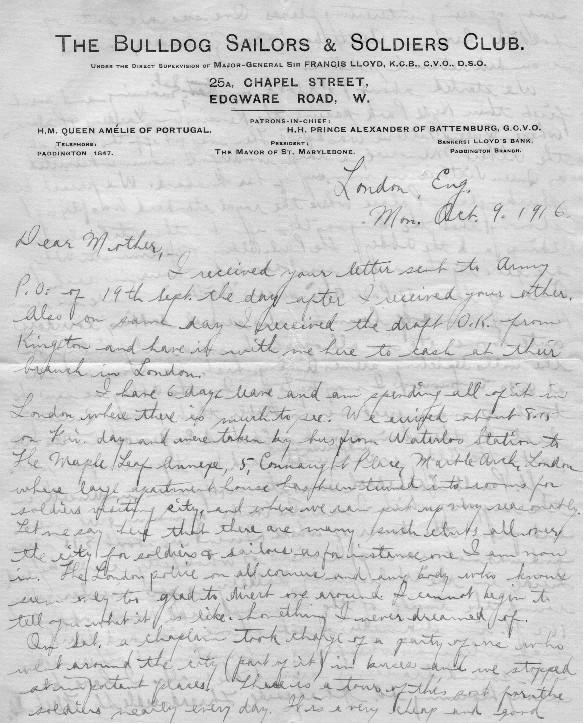 THE BULLDOG SAILORS & SOLDIERS CLUB.
UNDER THE DIRECT SUPERVISION OF MAJOR-GENERAL SIR FRANCIS LLOYD, K.C.B., C.V.O., D.S.O.
25A, CHAPEL STREET,
EDGWARE ROAD, W.
PATRONS-IN-CHIEF:
H.M. QUEEN AMÉLIE OF PORTUGAL. H.H. PRINCE ALEXANDER OF BATTENBURG, G.C.V.O.
TELEPHONE: PADDINGTON 1847.
PRESIDENT: THE MAYOR OF ST. MARYLEBONE.
BANKERS: LLOYD'S BANK, PADDINGTON BRANCH.
London, Eng.
Mon. Oct. 9. 1916.
Dear Mother,
I received your letter sent to Army
P.O. of 19th Sept. the day after I received your other.
Also on same day I received the draft O.K. from
Kingston and have it with me here to cash at their
branch in London.
I have 6 days leave and am spending all of it in
London where there is much to see. We arrived at about 8.15
on Fri. day and were taken by bus from Waterloo Station to
The Maple Leaf Annexe, 5, Connaught Place, Marble Arch, London
where large apartment house has been turned into rooms for
soldiers visiting city, and where we can very reasonably.
Let me say here that there are many such all over
the city for soldiers & sailors as for instance one I am now
in. The London police on all corners and any body who knows
seem only too glad to direct one around. I cannot begin to
tell you what it is like. Something I never dreamed of.
On Sat. a chaplain took charge of a party of us who
went around the city (part of it) in and we stopped
at important places. There is a tour of this sort for the
soldiers nearly every day. It is very cheap and good